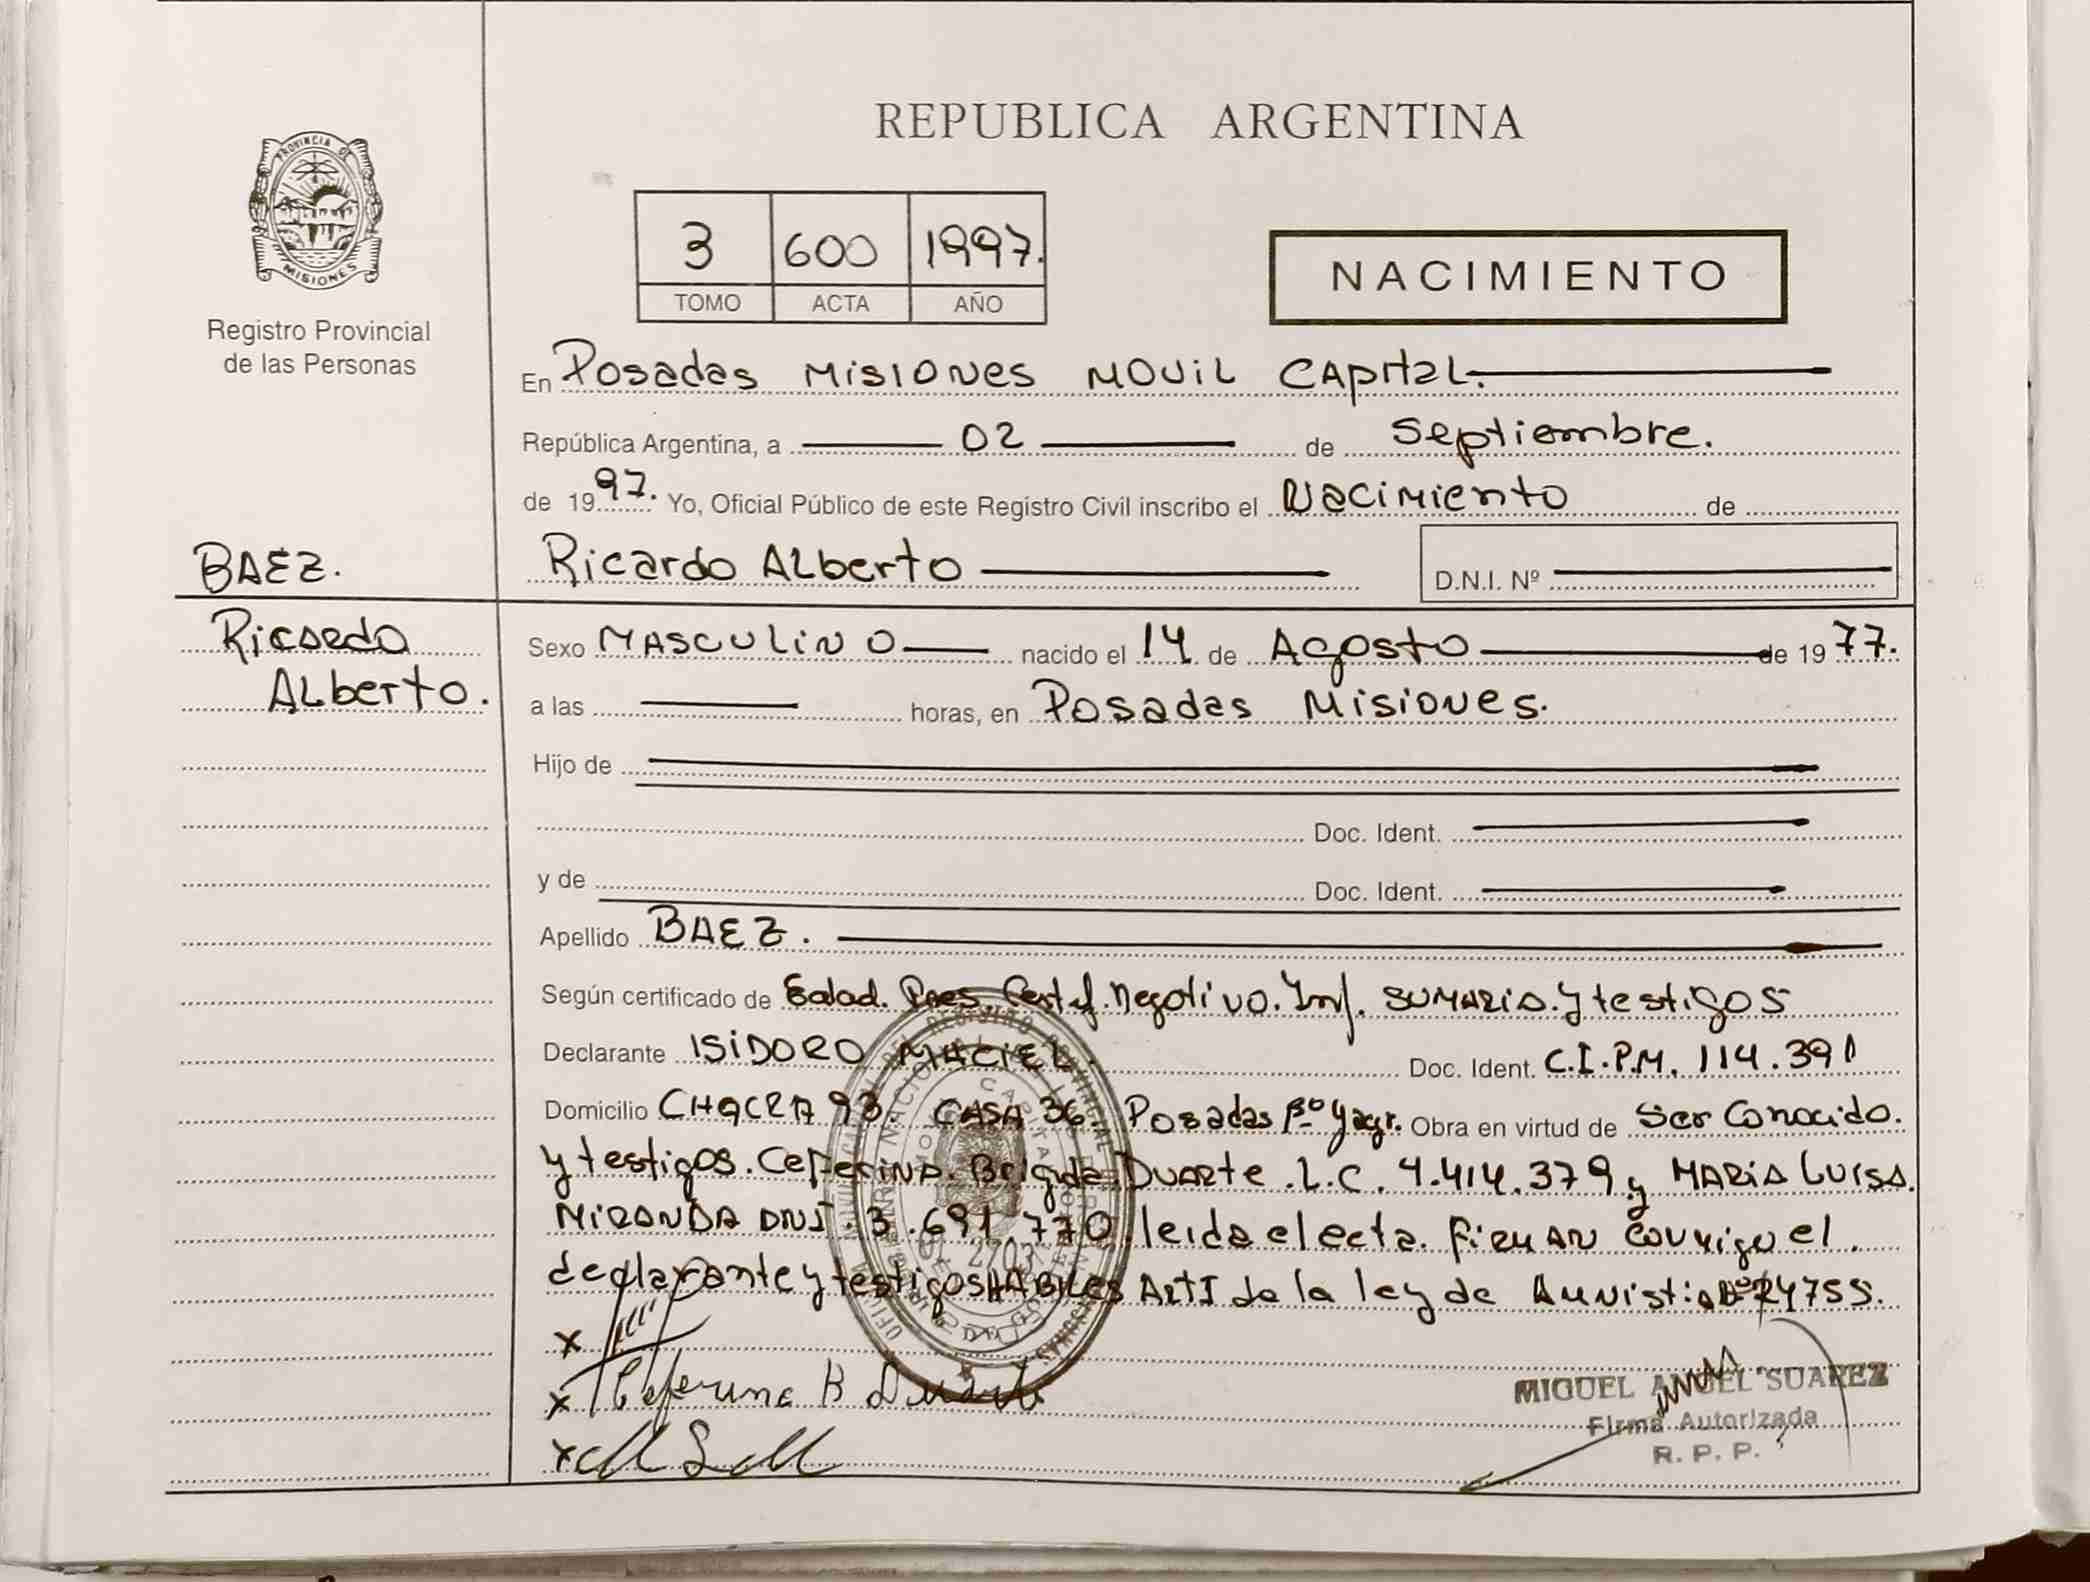 REPUBLICA ARGENTINA
PROVINCIA DE
MISIONES
Registro Provincial
de las Personas
3 600 1997.
TOMO ACTA AÑO
NACIMIENTO
En Posadas Misiones Movil Capital.
República Argentina, a 02 de Septiembre.
de 1997. Yo, Oficial Público de este Registro Civil inscribo el Nacimiento de
BAEZ.
Ricardo Alberto D.N.I. Nº
Ricardo
Alberto.
Sexo MASCULINO nacido el 14 de Agosto de 1977.
a las horas, en Posadas Misiones.
Hijo de
Doc. Ident.
y de Doc. Ident.
Apellido BAEZ.
Según certificado de Edad. Certif. Negativo. Inf. SUMARIO. y testigos
Declarante ISIDORO MACIEL. Doc. Ident. C.I.P.M. 114.391
Domicilio CHACRA 93. CASA 36. Posadas Bº Yacyr. Obra en virtud de Ser Conocido.
y testigos. Ceferina. Brigida Duarte. L.C. 4.414.379 y MARIA LUISA.
MIRANDA DNI. 3.691.770 leida el acta. firman conmigo el.
declarante y testigos HABILES Art I de la ley de Amnistia Nº 24755.
x
x Ceferina B Duarte
x
MIGUEL ANGEL SUAREZ
Firma Autorizada
R. P. P.